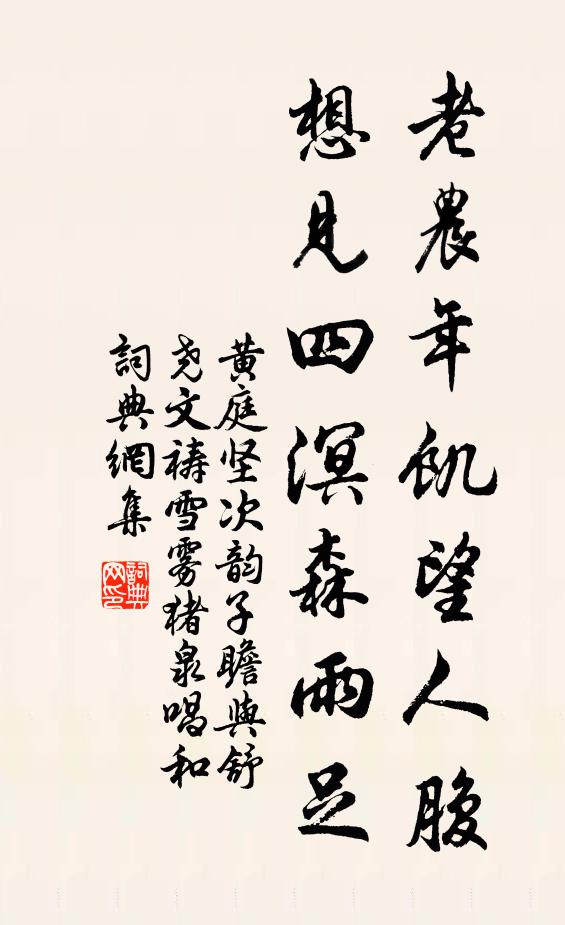 老農年飢望人腹
想見四溟森雨足
黄庭坚次韵子瞻與舒
尧文禱雪雾猪泉唱和
詞典網集
詞典網印